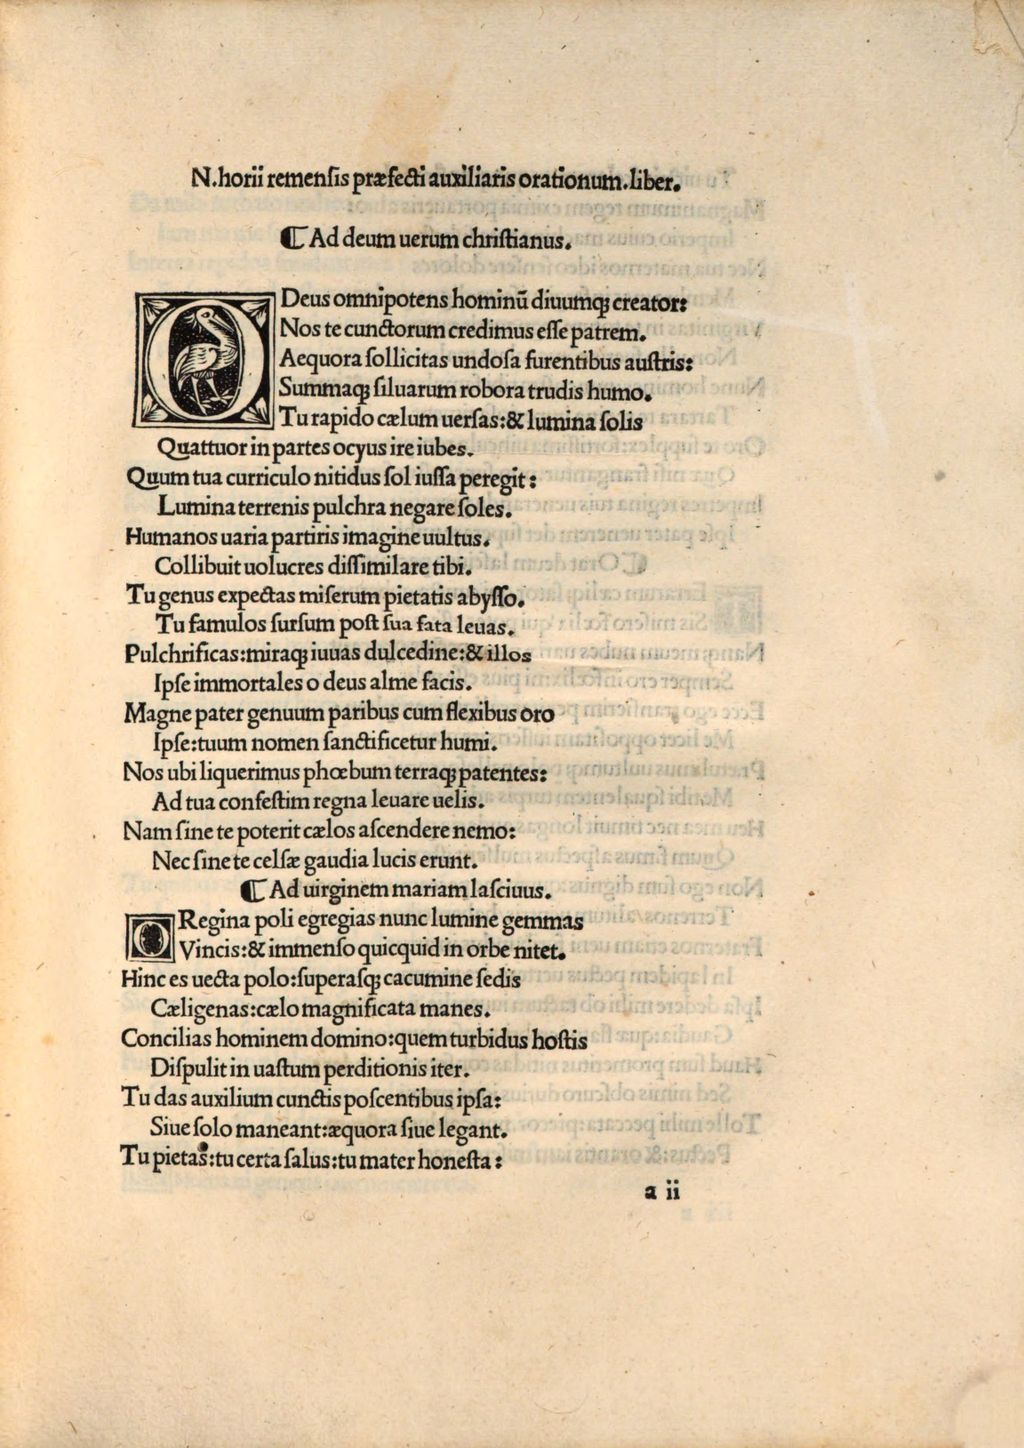 N.horii remenſis præfecti auxiliaris orationum.liber.
¶ Ad deum uerum chriſtianus.
O Deus omnipotens hominū diuumqꝫ creator:
Nos te cunctorum credimus eſſe patrem.
Aequora ſollicitas undoſa furentibus auſtris:
Summaqꝫ ſiluarum robora trudis humo.
Tu rapido cælum uerſas:& lumina ſolis
Quattuor in partes ocyus ire iubes.
Quum tua curriculo nitidus ſol iuſſa peregit:
Lumina terrenis pulchra negare ſoles.
Humanos uaria partiris imagine uultus.
Collibuit uolucres diſſimilare tibi.
Tu genus expectas miſerum pietatis abyſſo.
Tu famulos ſurſum poſt ſua fata leuas.
Pulchrificas:miraqꝫ iuuas dulcedine:& illos
Ipſe immortales o deus alme facis.
Magne pater genuum paribus cum flexibus oro
Ipſe:tuum nomen ſanctificetur humi.
Nos ubi liquerimus phœbum terraqꝫ patentes:
Ad tua confeſtim regna leuare uelis.
Nam ſine te poterit cælos aſcendere nemo:
Nec ſine te celſæ gaudia lucis erunt.
¶ Ad uirginem mariam laſciuus.
O Regina poli egregias nunc lumine gemmas
Vincis:& immenſo quicquid in orbe nitet.
Hinc es uecta polo:ſuperaſqꝫ cacumine ſedis
Cæligenas:cælo magnificata manes.
Concilias hominem domino:quem turbidus hoſtis
Diſpulit in uaſtum perditionis iter.
Tu das auxilium cunctis poſcentibus ipſa:
Siue ſolo maneant:æquora ſiue legant.
Tu pietas:tu certa ſalus:tu mater honeſta:
a ii